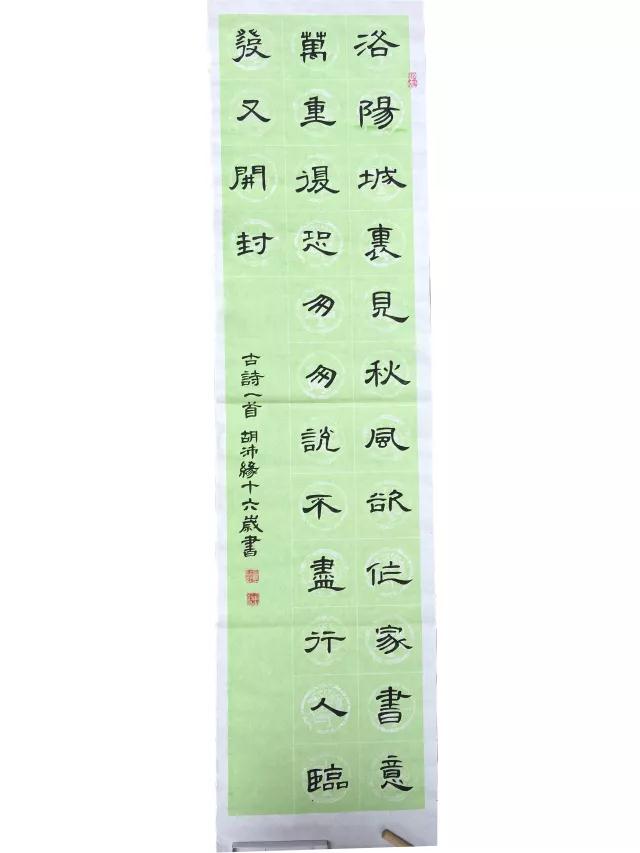 洛陽城裏見秋風欲作家書意
萬重復恐匆匆說不盡行人臨
發又開封
古詩一首 胡沛緣十六歲書